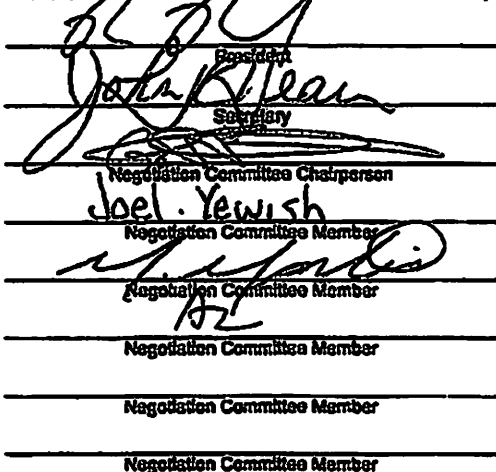 President
John
Secretary
Negotiation Committee Chairperson
Joel. Yewish
Negotiation Committee Member
M.
Negotiation Committee Member
Negotiation Committee Member
Negotiation Committee Member
Negotiation Committee Member